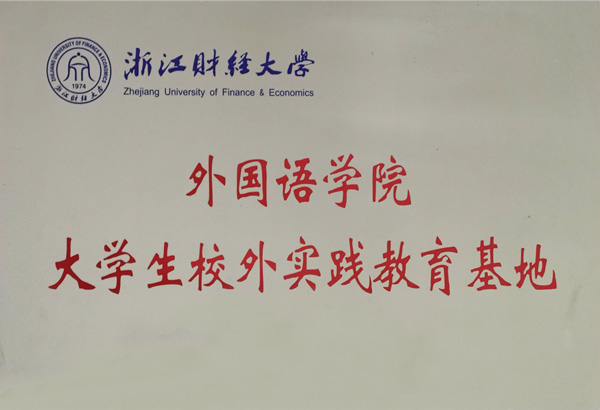 浙江财经大学
Zhejiang University of Finance & Economics
ZHEJIANG UNIVERSITY OF FINANCE & ECONOMICS
1974
浙江财经大学
外国语学院
大学生校外实践教育基地